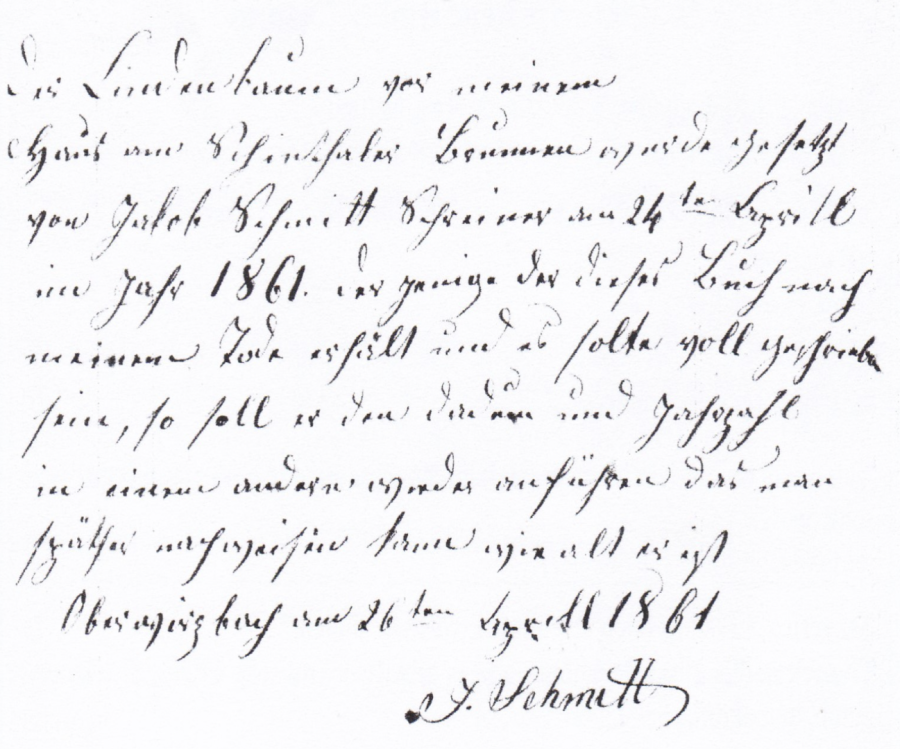 Der Lindenbaum vor meinem
Haus am Schinthaler Brunnen wurde gesetzt
von Jakob Schmitt Schreiner am 24ten Aprill
im Jahr 1861. der jenige der dieses Buch nach
meinem Tode erhält und es solte voll geschrieben
sein, so soll er den dadum und Jahrzahl
in einem andern wieder anführen das man
später nachweisen kann wie alt er ist
Oberwürzbach am 26ten Aprill 1861
J. Schmitt